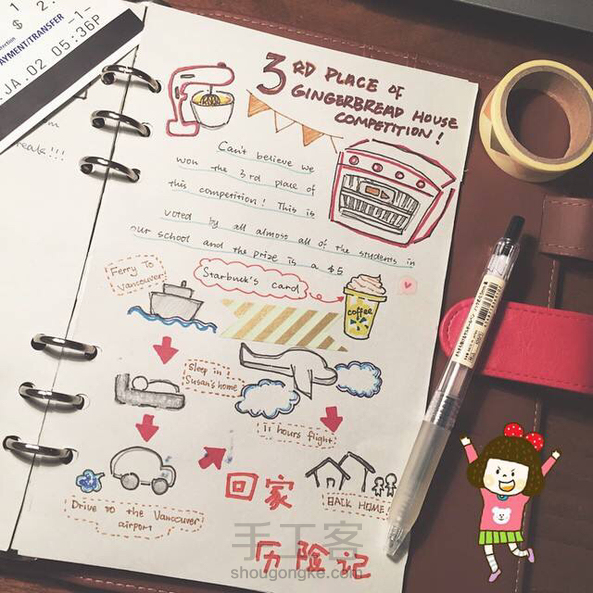 $ 2.
PAYMENT/TRANSFER -1-
JA.02 05:36P
reak!!!
3RD PLACE OF
GINGERBREAD HOUSE
COMPETITION!
Can't believe we
won the 3rd place of
this competition! This is
voted by all almost all of the students in
our school and the prize is a $5
Starbuck's card
coffee
Ferry To
Vancouver
Sleep in
Susan's home
11 hours flight
Drive to the Vancouver
airport
BACK HOME!
回家
历险记
手工客
shougongke.com